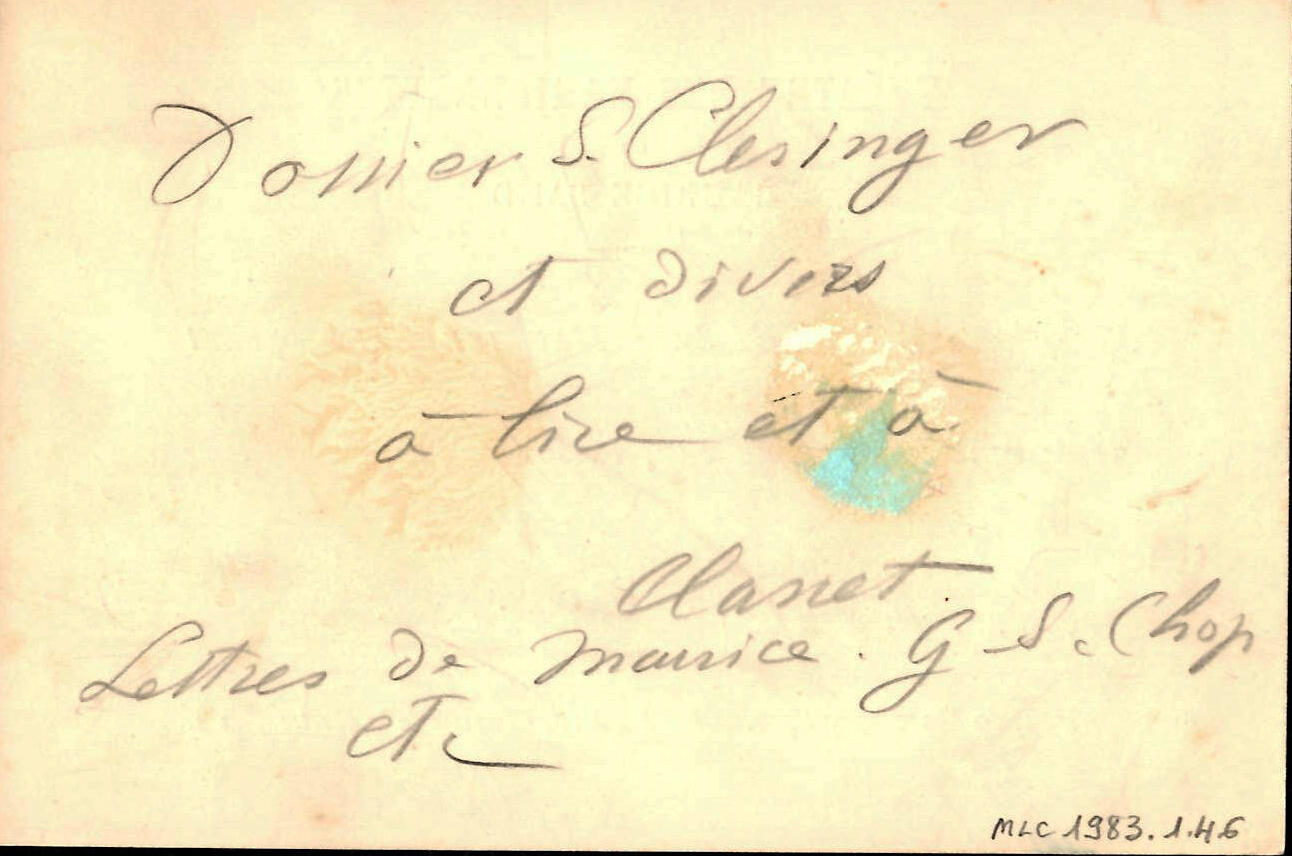 Dossier S. Clesinger
et divers
à lire et à
Classer
Lettres de Maurice. G S. Chop
etc
MLC 1983.1.46